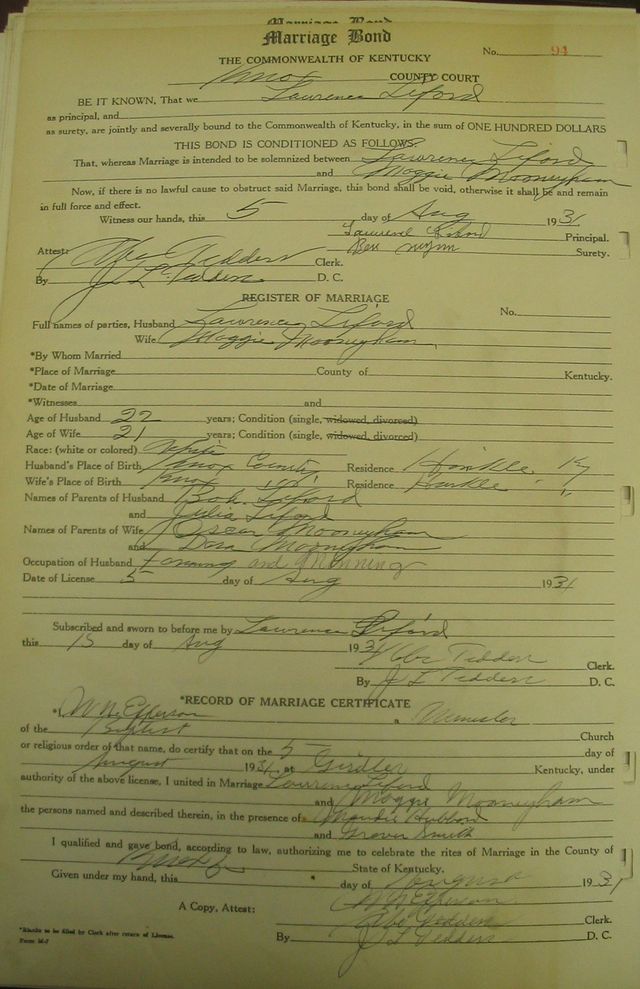 Marriage Bond
Marriage Bond
No. 94
THE COMMONWEALTH OF KENTUCKY
Knox COUNTY COURT
BE IT KNOWN, That we Lawrence Liford
as principal, and
as surety, are jointly and severally bound to the Commonwealth of Kentucky, in the sum of ONE HUNDRED DOLLARS
THIS BOND IS CONDITIONED AS FOLLOWS:
That, whereas Marriage is intended to be solemnized between Lawrence Liford
and Maggie Mooneyham
Now, if there is no lawful cause to obstruct said Marriage, this bond shall be void, otherwise it shall be and remain
in full force and effect.
Witness our hands, this 5 day of Aug 1931
Lawrence Liford Principal.
Ben Surety.
Attest: Abe Tedders Clerk.
By J L Tedders D. C.
REGISTER OF MARRIAGE
No.
Full names of parties, Husband Lawrence Liford
Wife Maggie Mooneyham
*By Whom Married
*Place of Marriage County of Kentucky.
*Date of Marriage
*Witnesses and
Age of Husband 22 years; Condition (single, widowed, divorced)
Age of Wife 21 years; Condition (single, widowed, divorced)
Race: (white or colored) White
Husband's Place of Birth Knox County Residence Hinkle, Ky
Wife's Place of Birth Knox " Residence Hinkle "
Names of Parents of Husband Bob Liford
and Julia Liford
Names of Parents of Wife Oscar Mooneyham
and Dora Mooneyham
Occupation of Husband Farming and Minning
Date of License 5 day of Aug 1931
Subscribed and sworn to before me by Lawrence Liford
this 15 day of Aug 1931
Abe Tedders Clerk.
By J L Tedders D. C.
*RECORD OF MARRIAGE CERTIFICATE
* Epperson a Minister
of the Baptist Church
or religious order of that name, do certify that on the 5 day of
August 1931, at Girdler Kentucky, under
authority of the above license, I united in Marriage Lawrence Liford
and Maggie Mooneyham
the persons named and described therein, in the presence of Maudie Hubbard
and Grover Smith
I qualified and gave bond, according to law, authorizing me to celebrate the rites of Marriage in the County of
Knox State of Kentucky.
Given under my hand, this day of August 1931
Epperson
A Copy, Attest: Abe Tedders Clerk.
By J L Tedders D. C.
*Blanks to be filled by Clerk after return of License.
Form M-7